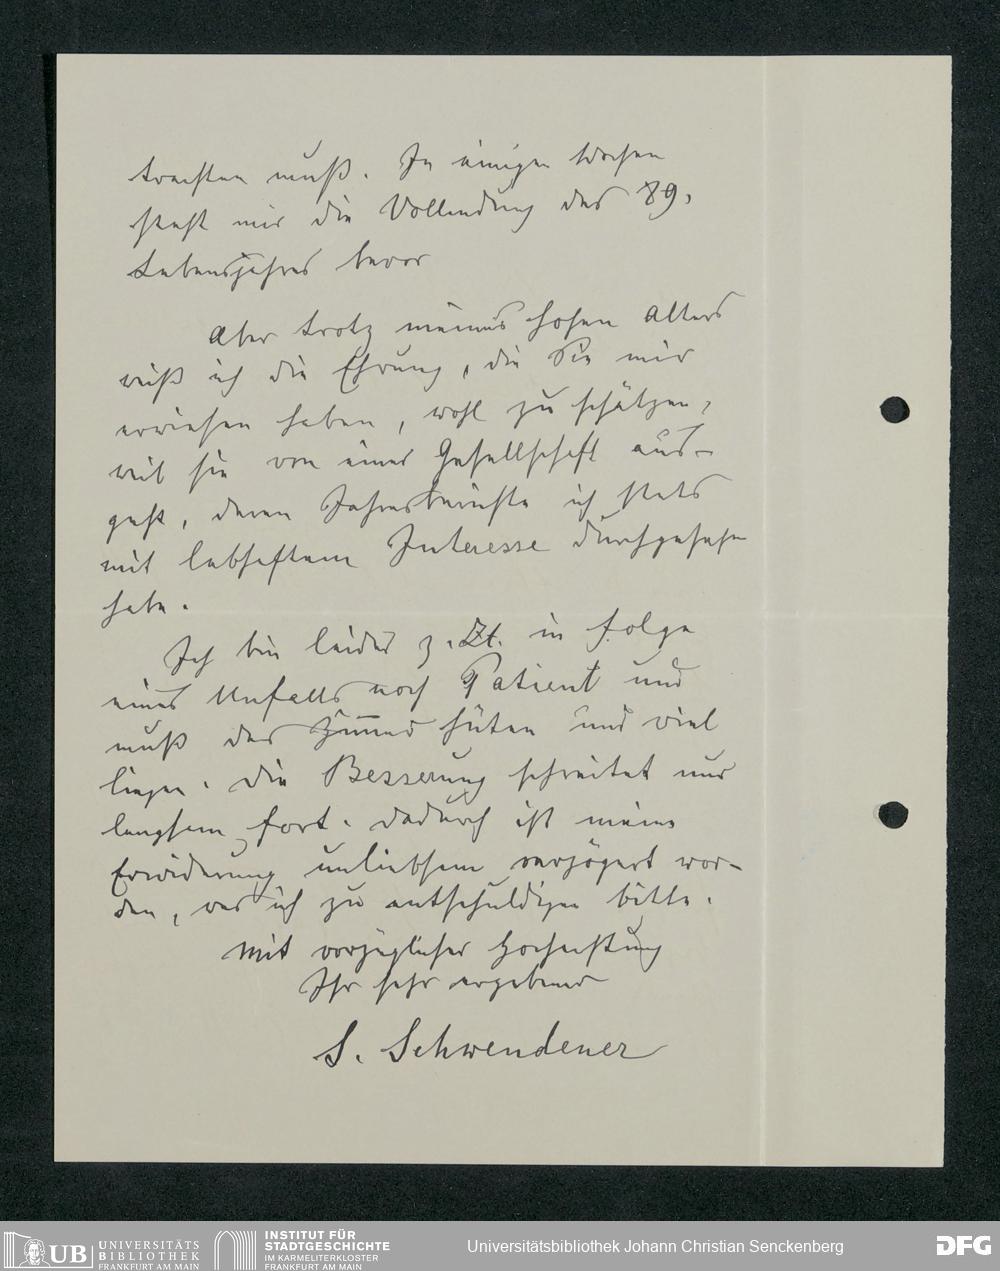 trachten muß. In einigen Wochen
steht mir die Vollendung des 89.
Lebensjahres bevor
Aber trotz meines hohen Alters
weiß ich die Ehrung, die Sie mir
erwiesen haben, wohl zu schätzen,
weil sie von einer Gesellschaft aus-
geht, deren Jahresberichte ich stets
mit lebhaftem Interesse durchgesehen
habe.
Ich bin leider z. Zt. in Folge
eines Unfalls noch Patient und
muß das Zimmer hüten und viel
liegen. Die Besserung schreitet nur
langsam fort. Dadurch ist meine
Erwiderung unliebsam verzögert wor-
den, was ich zu entschuldigen bitte.
Mit vorzüglicher Hochachtung
Ihr sehr ergebener
S. Schwendener
UB UNIVERSITÄTS
BIBLIOTHEK
FRANKFURT AM MAIN
INSTITUT FÜR
STADTGESCHICHTE
IM KARMELITERKLOSTER
FRANKFURT AM MAIN
Universitätsbibliothek Johann Christian Senckenberg
DFG